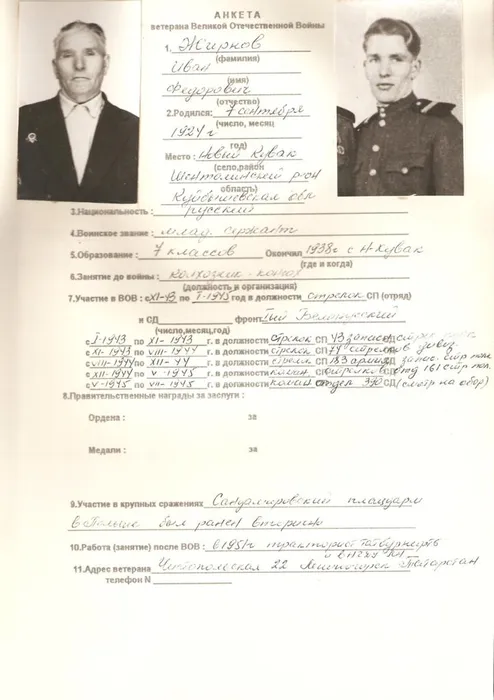 АНКЕТА
ветерана Великой Отечественной Войны
1. Жирнов
(фамилия)
Иван
(имя)
Федорович
(отчество)
2.Родился: 7 сентября
(число, месяц
1924 г
год)
Место : Новый Кувак
(село,район
Шенталинский р-он
область)
Куйбышевская обл
3.Национальность : русский
4.Воинское звание : млад. сержант
5.Образование : 7 классов Окончил 1938 г с Н-Кувак
(где и когда)
6.Занятие до войны : колхозник-конюх
(должность и организация)
7.Участие в ВОВ : с XI-43 по I-1943 год в должности стрелок СП (отряд)
и СД фронт Iый Белорусский
(число,месяц,год)
с I-1943 по XI-1943 г. в должности стрелок СП 43 запас СД стрел полк
с XI-1943 по VIII-1944 г. в должности стрелок СП
с VIII-1944 по XII-44 г. в должности стрелок СП
с XII-1944 по V-1945 г. в должности СП 161 стр пол.
с V-1945 по VII-1945 г. в должности СД
8.Правительственные награды за заслуги :
Ордена : за
Медали : за
9.Участие в крупных сражениях Сандамировский плацдарм
в Польше был ранен вторично
10.Работа (занятие) после ВОВ : в 1951г тракторист
11.Адрес ветерана Чистопольская 22 Лениногорск Татарстан
телефон N